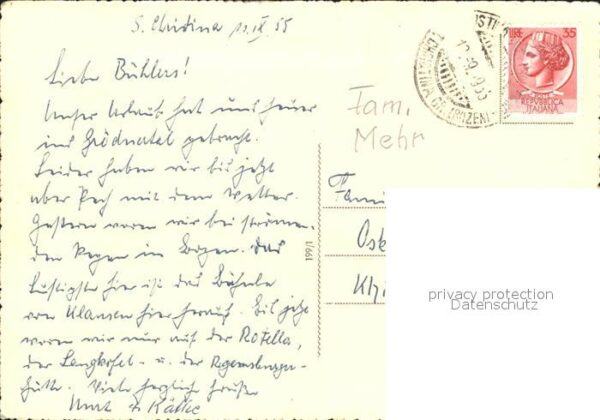 S. Christina 11. IX 55
Liebe Bühlers!
Unser Urlaub hat uns heuer
ins Grödnatal gebracht.
Leider haben wir bis jetzt
aber Pech mit dem Wetter.
Gestern waren wir bei strömen-
den Regen in Bozen. Das
Lustigste hier ist das Bähnle
von Klausen hier herauf. Bis jetzt
waren wir nur auf der
der Langkofel- u. der Regensburger-
hütte. Viele herzliche Grüße
Kurt & Käthe
Fam.
Mehr
199/1
LIRE 35
REPUBBLICA
ITALIANA
privacy protection
Datenschutz